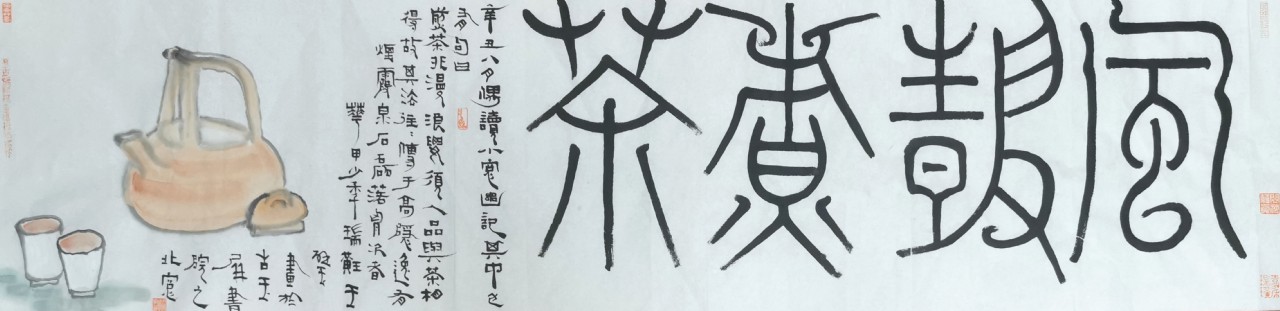 風鼓茶
辛丑八月偶讀小窗幽記其中之
有句曰
煎茶非漫浪要須人品與茶相
得故其法往:傳于高隱逸有
煙霞泉石磊落胸次者
華甲少年瑞莊玉
畫於
古玉
屏書
院之
北窗